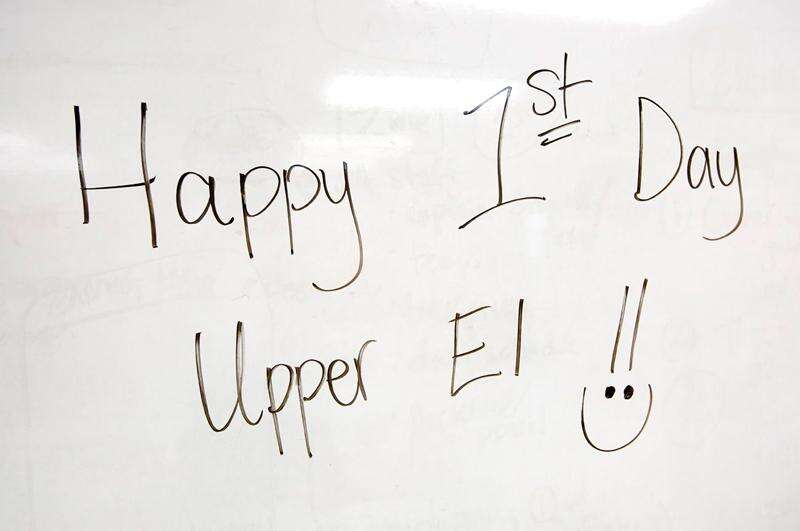 Happy 1st Day
Upper El !!